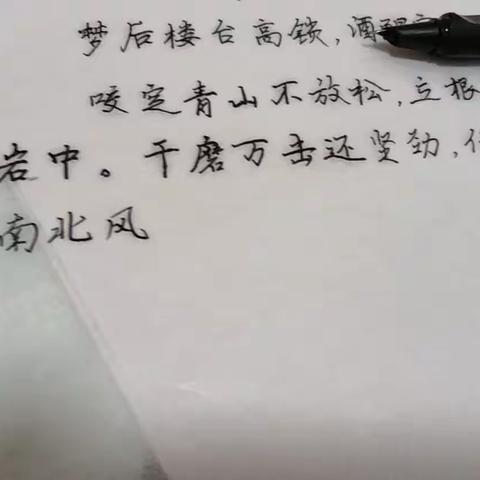 梦后楼台高锁，酒醒
咬定青山不放松，立根
岩中。千磨万击还坚劲，
南北风